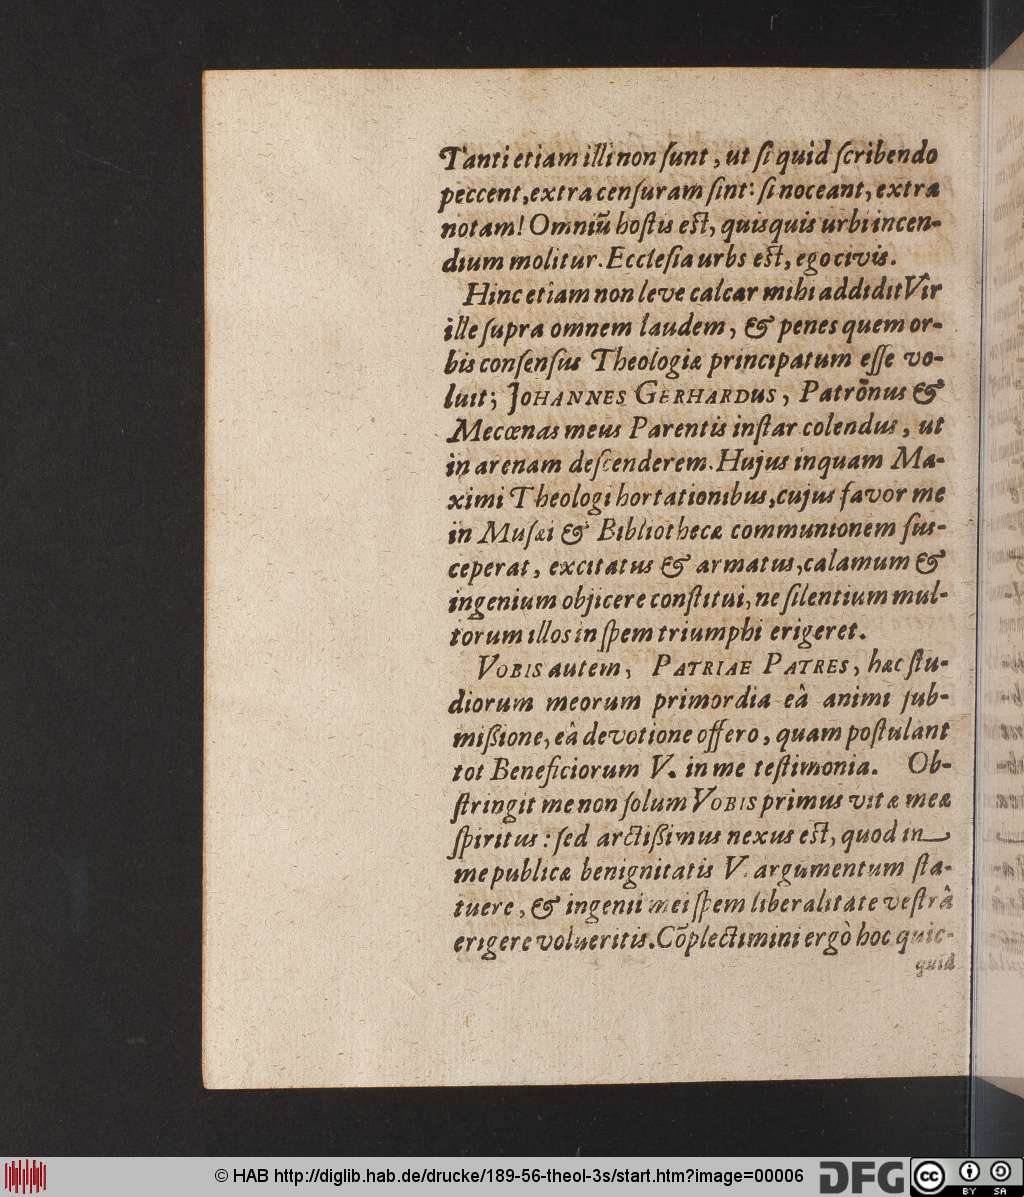 Tanti etiam illi non ſunt, ut ſi quid ſcribendo
peccent, extra cenſuram ſint: ſi noceant, extra
notam! Omniũ hoſtis eſt, quisquis urbi incen-
dium molitur. Eccleſia urbs eſt, ego civis.
Hinc etiam non leve calcar mihi addidit Vir
ille ſupra omnem laudem, & penes quem or-
bis conſenſus Theologiæ principatum eſſe vo-
luit; JOHANNES GERHARDUS, Patronus &
Mecœnas meus Parentis inſtar colendus, ut
in arenam deſcenderem. Hujus inquam Ma-
ximi Theologi hortationibus, cujus favor me
in Muſæi & Bibliothecæ communionem ſuſ-
ceperat, excitatus & armatus, calamum &
ingenium objicere conſtitui, ne ſilentium mul-
torum illos in ſpem triumphi erigeret.
VOBIS autem, PATRIAE PATRES, hæc ſtu-
diorum meorum primordia eâ animi ſub-
mißione, eâ devotione offero, quam poſtulant
tot Beneficiorum V. in me teſtimonia. Ob-
ſtringit me non ſolum VOBIS primus vitæ meæ
ſpiritus: ſed arctißimus nexus eſt, quod in
me publicæ benignitatis V. argumentum ſta-
tuere, & ingenii mei ſpem liberalitate veſtrâ
erigere volueritis. Cõplectimini ergò hoc quic-
quid
© HAB http://diglib.hab.de/drucke/189-56-theol-3s/start.htm?image=00006
DFG
cc
BY SA